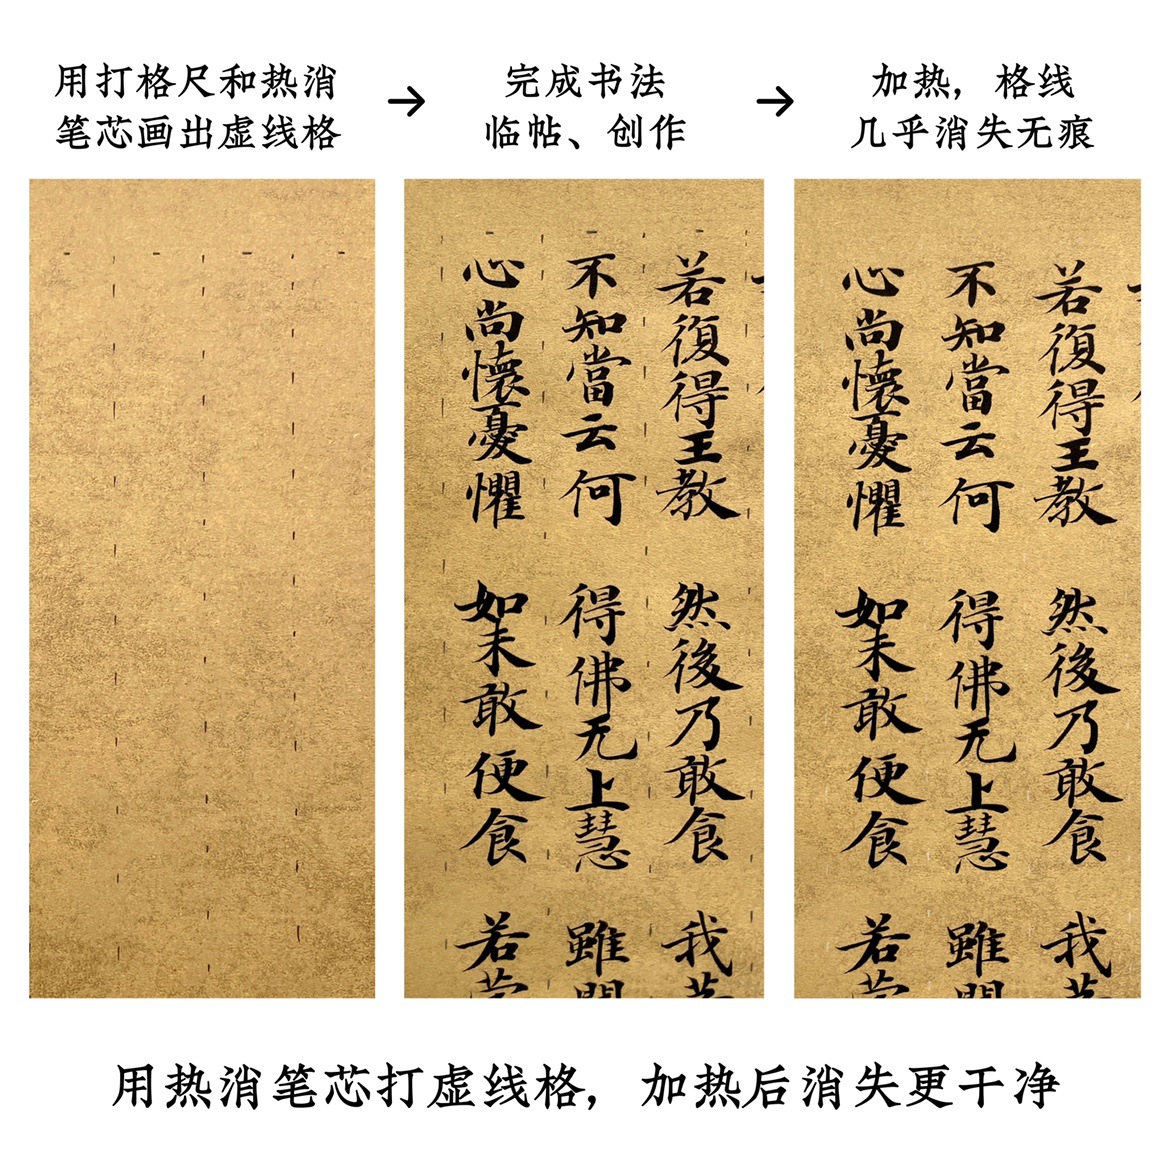 用打格尺和热消
笔芯画出虚线格
→
完成书法
临帖、创作
→
加热，格线
几乎消失无痕
若復得王教
然後乃敢食
我
不知當云何
得佛无上慧
雖聞
心尚懷憂懼
如未敢便食
若
若復得王教
然後乃敢食
我
不知當云何
得佛无上慧
雖聞
心尚懷憂懼
如未敢便食
若
用热消笔芯打虚线格，加热后消失更干净